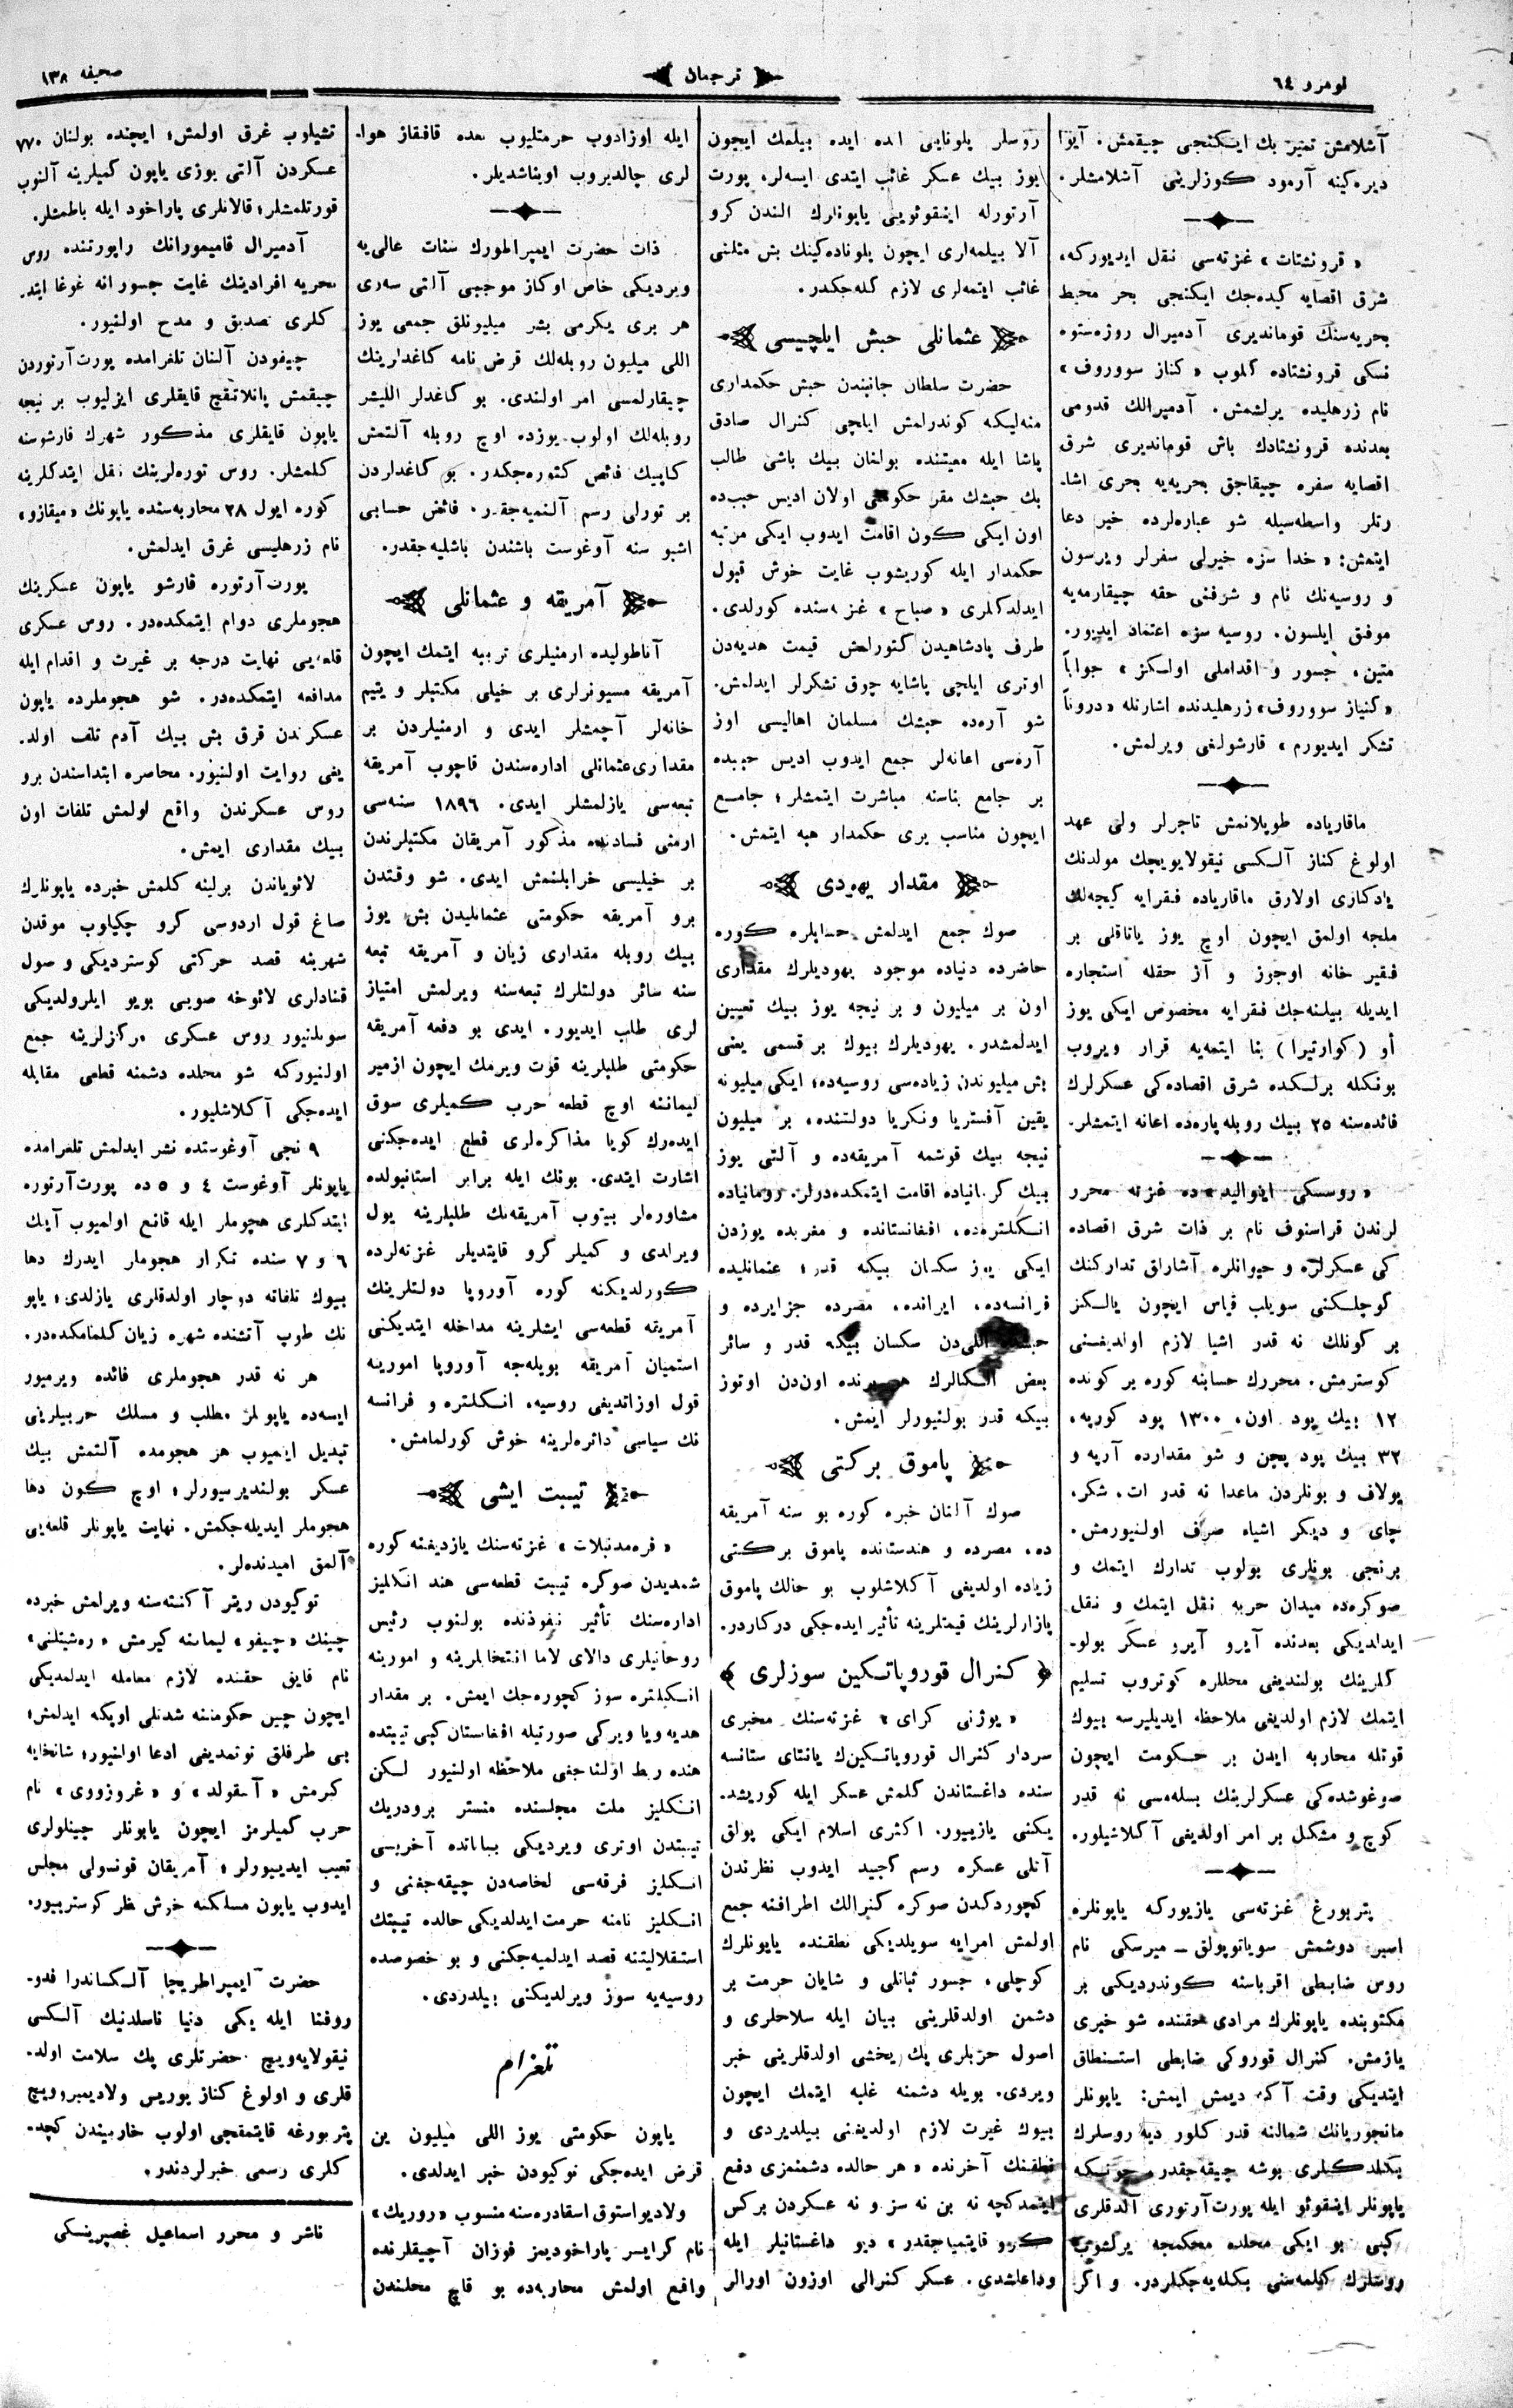 نومرو ٦٤
ترجمان
صحيفه ١٣٨
آشلامش تميز بك ايكنجى چيقمش. آيوا
ديره‌كينه آرمود كوزلرينى آشلامشلر.
« قرونشتات » غزته‌سى نقل ايديوركه،
شرق اقصايه كيده‌جك ايكنجى بحر محيط
بحريه‌سنك قومانديرى آدميرال روژه‌ستوه
نسكى قرونشتاده كلوب « كناز سووروف »
نام زرهليده يرلشمش. آدميرالك قدومى
بعدنده قرونشتادك باش قومانديرى شرق
اقصايه سفره چيقاجق بحريه‌يه بحرى اشا-
رتلر واسطه‌سيله شو عباره‌لرده خير دعا
ايتمش: « خدا سزه خيرلى سفرلر ويرسون
و روسيه‌نك نام و شرفنى حقه چيقارمه‌يه
موفق ايلسون. روسيه سزه اعتماد ايديور.
متين، جسور و اقداملى اولكز » جواباً
« كنياز سووروف» زرهليدنده اشارتله « دروناً
تشكر ايديورم » قارشولغى ويرلمش.
ماقارياده طوپلانمش تاجرلر ولى عهد
اولوغ كناز آلكسى نيقولايويچك مولدنك
يادكارى اولارق ماقارياده فقرايه كيجه‌لك
ملجه اولمق ايچون اوچ يوز ياتاقلى بر
فقير خانه اوجوز و آز حقله استجاره
ايديله بيلنه‌جك فقرايه مخصوص ايكى يوز
أو (كوارتيرا) بنا ايتمه‌يه قرار ويروب
بونكله برلكده شرق اقصاده‌كى عسكرلرك
فائده‌سنه ٢٥ بيك روبله پاره‌ده اعانه ايتمشلر.
« روسسكى اينواليد » ده غزته محرر
لرندن قراسنوف نام بر ذات شرق اقصاده
كى عسكرلره و حيوانلره آشاراق تداركنك
كوچلكنى سويلب قياس ايچون يالكز
بر كونلك نه قدر اشيا لازم اولديغنى
كوسترمش. محررك حسابنه كوره بر كونده
١٢ بيك پود اون، ١٣٠٠ پود كورپه،
٣٢ بيك پود پچن و شو مقدارده آرپه و
پولاف و بونلردن ماعدا نه قدر ات، شكر،
چاى و ديكر اشياء صرف اولنيورمش.
برنجى بونلرى بولوب تدارك ايتمك و
صوكره‌ده ميدان حربه نقل ايتمك و نقل
ايدلديكى بعدنده آيرو آيرو عسكر بولو-
كلرينك بولنديغى محللره كوتروب تسليم
ايتمك لازم اولديغى ملاحظه ايديليرسه بيوك
قوتله محاربه ايدن بر حكومت ايچون
صوغوشده‌كى عسكرلرينك بسله‌مسى نه قدر
كوچ و مشكل بر امر اولديغى آكلاشيلور.
پتربورغ غزته‌سى يازيوركه ياپونلره
اسير دوشمش سوياتوپولق ـ ميرسكى نام
روس ضابطى اقرباسنه كوندرديكى بر
مكتوبنده ياپونلرك مرادى حقنده شو خبرى
يازمش. كنرال قوروكى ضابطى استنطاق
ايتديكى وقت آكه ديمش ايمش: ياپونلر
مانجوريانك شمالنه قدر كلور ديه روسلرك
بكلدكلرى بوشه چيقه‌جقدر، چونكه
ياپونلر اينقوئو ايله پورت‌آرتورى آلدقلرى
كبى بو ايكى محلده محكمجه يرلشوب
روسلرك كلمه‌سنى بكله‌يه‌جكلردر. و اكر
روسلر پلونايى اده ايده بيلمك ايچون
يوز بيك عسكر غائب ايتدى ايسه‌لر، پورت
آرتورله اينقوئويى ياپونلرك الندن كرو
آلا بيلمه‌لرى ايچون پلوناده‌كينك بش مثلنى
غائب ايتمه‌لرى لازم كله‌جكدر.
عثمانلى حبش ايلچيسى
حضرت سلطان جانبندن حبش حكمدارى
منه‌ليكه كوندرلمش ايلچى كنرال صادق
پاشا ايله معيتنده بولنان بيك باشى طالب
بك حبشك مقر حكومتى اولان اديس حببه‌ده
اون ايكى كون اقامت ايدوب ايكى مرتبه
حكمدار ايله كوريشوب غايت خوش قبول
ايدلدكلرى « صباح » غزته‌سنده كورلدى.
طرف پادشاهيدن كتورلمش قيمت هديه‌دن
اوترى ايلچى پاشايه چوق تشكرلر ايدلمش.
شو آره‌ده حبشك مسلمان اهاليسى اوز
آره‌سى اعانه‌لر جمع ايدوب اديس حببده
بر جامع بناسنه مباشرت ايتمشلر؛ جامع
ايچون مناسب يرى حكمدار هبه ايتمش.
مقدار يهودى
صوك جمع ايدلمش حسابلره كوره
حاضرده دنياده موجود يهوديلرك مقدارى
اون بر ميليون و بر نيجه يوز بيك تعيين
ايدلمشدر. يهوديلرك بيوك بر قسمى يعنى
بش ميليوندن زياده‌سى روسيه‌ده؛ ايكى ميليونه
يقين آفستريا ونكريا دولتنده، بر ميليون
نيجه بيك قوشمه آمريقه‌ده و آلتى يوز
بيك كرمانياده اقامت ايتمكده‌درلر. رومانياده
انكلتره‌ده، افغانستانده و مغربده يوزدن
ايكى يوز سكسان بيكه قدر؛ عثمانليده
فرانسه‌ده، ايرانده، مصرده جزايرده و
اللى‌دن سكسان بيكه قدر و سائر
بعض برنده اون‌دن اوتوز
بيكه قدر بولنيورلر ايمش.
پاموق بركتى
صوك آلنان خبره كوره بو سنه آمريقه
ده، مصرده و هندستانده پاموق بركتى
زياده اولديغى آكلاشلوب بو حالك پاموق
پازارلرينك قيمتلرينه تأثير ايده‌جكى دركاردر.
كنرال قوروپاتكين سوزلرى
« يوژنى كراى » غزته‌سنك مخبرى
سردار كنرال قوروپاتكين‌ك يانتاى ستانسه
سنده داغستاندن كلمش عسكر ايله كوريشد-
يكنى يازييور. اكثرى اسلام ايكى پولق
آتلى عسكره رسم كچيد ايدوب نظرندن
كچوردكدن صوكره كنرالك اطرافنه جمع
اولمش امرايه سويلديكى نطقنده ياپونلرك
كوچلى، جسور ثباتلى و شايان حرمت بر
دشمن اولدقلرينى بيان ايله سلاحلرى و
اصول حربلرى پك يخشى اولدقلرينى خبر
ويردى. بويله دشمنه غلبه ايتمك ايچون
بيوك غيرت لازم اولديغنى بيلديردى و
نطقنك آخرنده « هر حالده دشمنمزى دفع
ايتمدكچه نه بن نه سز و نه عسكردن بركس
كرو قايتمياجقدر » ديو داغستانيلر ايله
وداعلشدى. عسكر كنرالى اوزون اورالر
ايله اوزادوب حرمتليوب بعده قافقاز هوا-
لرى چالديروب اويناشديلر.
ذات حضرت ايمپراطورك سنات عالى‌يه
ويرديكى خاص اوكاز موجبى آلتى سه‌رى
هر برى يكرمى بشر ميليونلق جمعى يوز
اللى ميليون روبله‌لك قرض نامه كاغدلرينك
چيقارلمسى امر اولندى. بو كاغدلر الليشر
روبله‌لك اولوب يوزده اوچ روبله آلتمش
كاپيك فائض كتوره‌جكدر. بو كاغدلردن
بر تورلى رسم آلنميه‌جقدر. فائض حسابى
اشبو سنه آوغوست باشندن باشليه‌جقدر.
آمريقه و عثمانلى
آناطوليده ارمنيلرى تربيه ايتمك ايچون
آمريقه مسيونرلرى بر خيلى مكتبلر و يتيم
خانه‌لر آچمشلر ايدى و ارمنيلردن بر
مقدارى عثمانلى اداره‌سندن قاچوب آمريقه
تبعه‌سى يازلمشلر ايدى. ١٨٩٦ سنه‌سى
ارمنى فسادنده مذكور آمريقان مكتبلرندن
بر خيليسى خرابلنمش ايدى. شو وقتدن
برو آمريقه حكومتى عثمانليدن بش يوز
بيك روبله مقدارى زيان و آمريقه تبعه
سنه سائر دولتلرك تبعه‌سنه ويرلمش امتياز
لرى طلب ايديور. ايدى بو دفعه آمريقه
حكومتى طلبلرينه قوت ويرمك ايچون ازمير
ليماننه اوچ قطعه حرب كميلرى سوق
ايده‌رك كويا مذاكره‌لرى قطع ايده‌جكنى
اشارت ايتدى. بونك ايله برابر استانبولده
مشاوره‌لر بيتوب آمريقه‌نك طلبلرينه يول
ويرلدى و كميلر كرو قايتديلر غزته‌لرده
كورلديكنه كوره آوروپا دولتلرينك
آمريقه قطعه‌سى ايشلرينه مداخله ايتديكنى
استميان آمريقه بويله‌جه آوروپا امورينه
قول اوزاتديغى روسيه، انكلتره و فرانسه
نك سياسى دائره‌لرينه خوش كورلمامش.
تيبت ايشى
« فره‌مدنبلات » غزته‌سنك يازديغنه كوره
شمديدن صوكره تيبت قطعه‌سى هند انكليز
اداره‌سنك تأثير نفوذنده بولنوب رئيس
روحانيلرى دالاى لاما انتخابلرينه و امورينه
انكلتره سوز كچوره‌جك ايمش. بر مقدار
هديه ويا ويركى صورتيله افغانستان كبى تيبتده
هنده ربط اولناجغى ملاحظه اولنيور لكن
انكليز ملت مجلسنده منستر برودريك
تيبتدن اوترى ويرديكى بياناتده آخريسى
انكليز فرقه‌سى لخاصه‌دن چيقه‌جغنى و
انكليز نامنه حرمت ايدلديكى حالده تيبتك
استقلاليتنه قصد ايدلميه‌جكنى و بو خصوصده
روسيه‌يه سوز ويرلديكنى بيلدردى.
تلغرام
ياپون حكومتى يوز اللى ميليون ين
قرض ايده‌جكى توكيودن خبر ايدلدى.
ولاديواستوق اسقادره‌سنه منسوب « روريك »
نام كرايسر پاراخوديمز فوزان آچيقلرنده
واقع اولمش محاربه‌ده بو قاچ محلندن
تشيلوب غرق اولمش؛ ايچنده بولنان ٧٧٠
عسكردن آلتى يوزى ياپون كميلرينه آلنوب
قورتلمشلر؛ قالانلرى پاراخود ايله باطمشلر.
آدميرال قاميمورانك راپورتنده روس
بحريه افرادينك غايت جسورانه غوغا ايتد-
كلرى تصديق و مدح اولنيور.
چيفودن آلنان تلغرامده پورت‌آرتوردن
چيقمش يانلاتنقچ قايقلرى ايزليوب بر نيجه
ياپون قايقلرى مذكور شهرك قارشوسنه
كلمشلر. روس توره‌لرينك نقل ايتدكلرينه
كوره ايول ٢٨ محاربه‌سنده ياپونك «ميقازو»
نام زرهليسى غرق ايدلمش.
پورت‌آرتوره قارشو ياپون عسكرينك
هجوملرى دوام ايتمكده‌در. روس عسكرى
قلعه‌يى نهايت درجه بر غيرت و اقدام ايله
مدافعه ايتمكده‌در. شو هجوملرده ياپون
عسكرندن قرق بش بيك آدم تلف اولد-
يغى روايت اولنيور. محاصره ابتداسندن برو
روس عسكرندن واقع اولمش تلفات اون
بيك مقدارى ايمش.
لائوياندن برلينه كلمش خبرده ياپونلرك
صاغ قول اردوسى كرو چكيلوب موقدن
شهرينه قصد حركتى كوسترديكى و صول
قنادلرى لائوخه صويى بويو ايلرولديكى
سويلنيور روس عسكرى مركزلرينه جمع
اولنيوركه شو محلده دشمنه قطعى مقابله
ايده‌جكى آكلاشليور.
٩ نجى آوغوستده نشر ايدلمش تلغرامده
ياپونلر آوغوست ٤ و ٥ ده پورت‌آرتوره
ايتدكلرى هجوملر ايله قانع اولميوب آيك
٦ و ٧ سنده تكرار هجوملر ايدرك دها
بيوك تلفاته دوچار اولدقلرى يازلدى؛ ياپو
نك طوپ آتشنده شهره زيان كلمامكده‌در.
هر نه قدر هجوملرى فائده ويرميور
ايسه‌ده ياپونلر مطلب و مسلك حربيلرينى
تبديل ايتميوب هر هجومده آلتمش بيك
عسكر بولنديرييورلر؛ اوچ كون دها
هجوملر ايديله‌جكمش. نهايت ياپونلر قلعه‌يى
آلمق اميدنده‌لر.
توكيودن ريتر آكنته‌سنه ويرلمش خبرده
چينك « چيفو » ليماننه كيرمش « ره‌شيتلنى »
نام قايق حقنده لازم معامله ايدلمديكى
ايچون چين حكومتنه شدتلى اوپكه ايدلمش؛
بى طرفلق توتمديغى ادعا اولنيور؛ شانخايه
كيرمش « آسقولد » و « غروزووى » نام
حرب كميلرمز ايچون ياپونلر چينلولرى
تعيب ايدييورلر؛ آمريقان قونسولى مجلس
ايدوب ياپون مسلكنه خوش نظر كوسترييور.
حضرت ايمپراطريچا آلكساندرا فدو-
روفنا ايله يكى دنيا تاسلدنيك آلكسى
نيقولايه‌ويچ حضرتلرى پك سلامت اولد-
قلرى و اولوغ كناز بوريس ولاديميروويچ
پتربورغه قايتمقجى اولوب خاربيندن كچد-
كلرى رسمى خبرلردندر.
ناشر و محرر اسماعيل غصپرينسكى